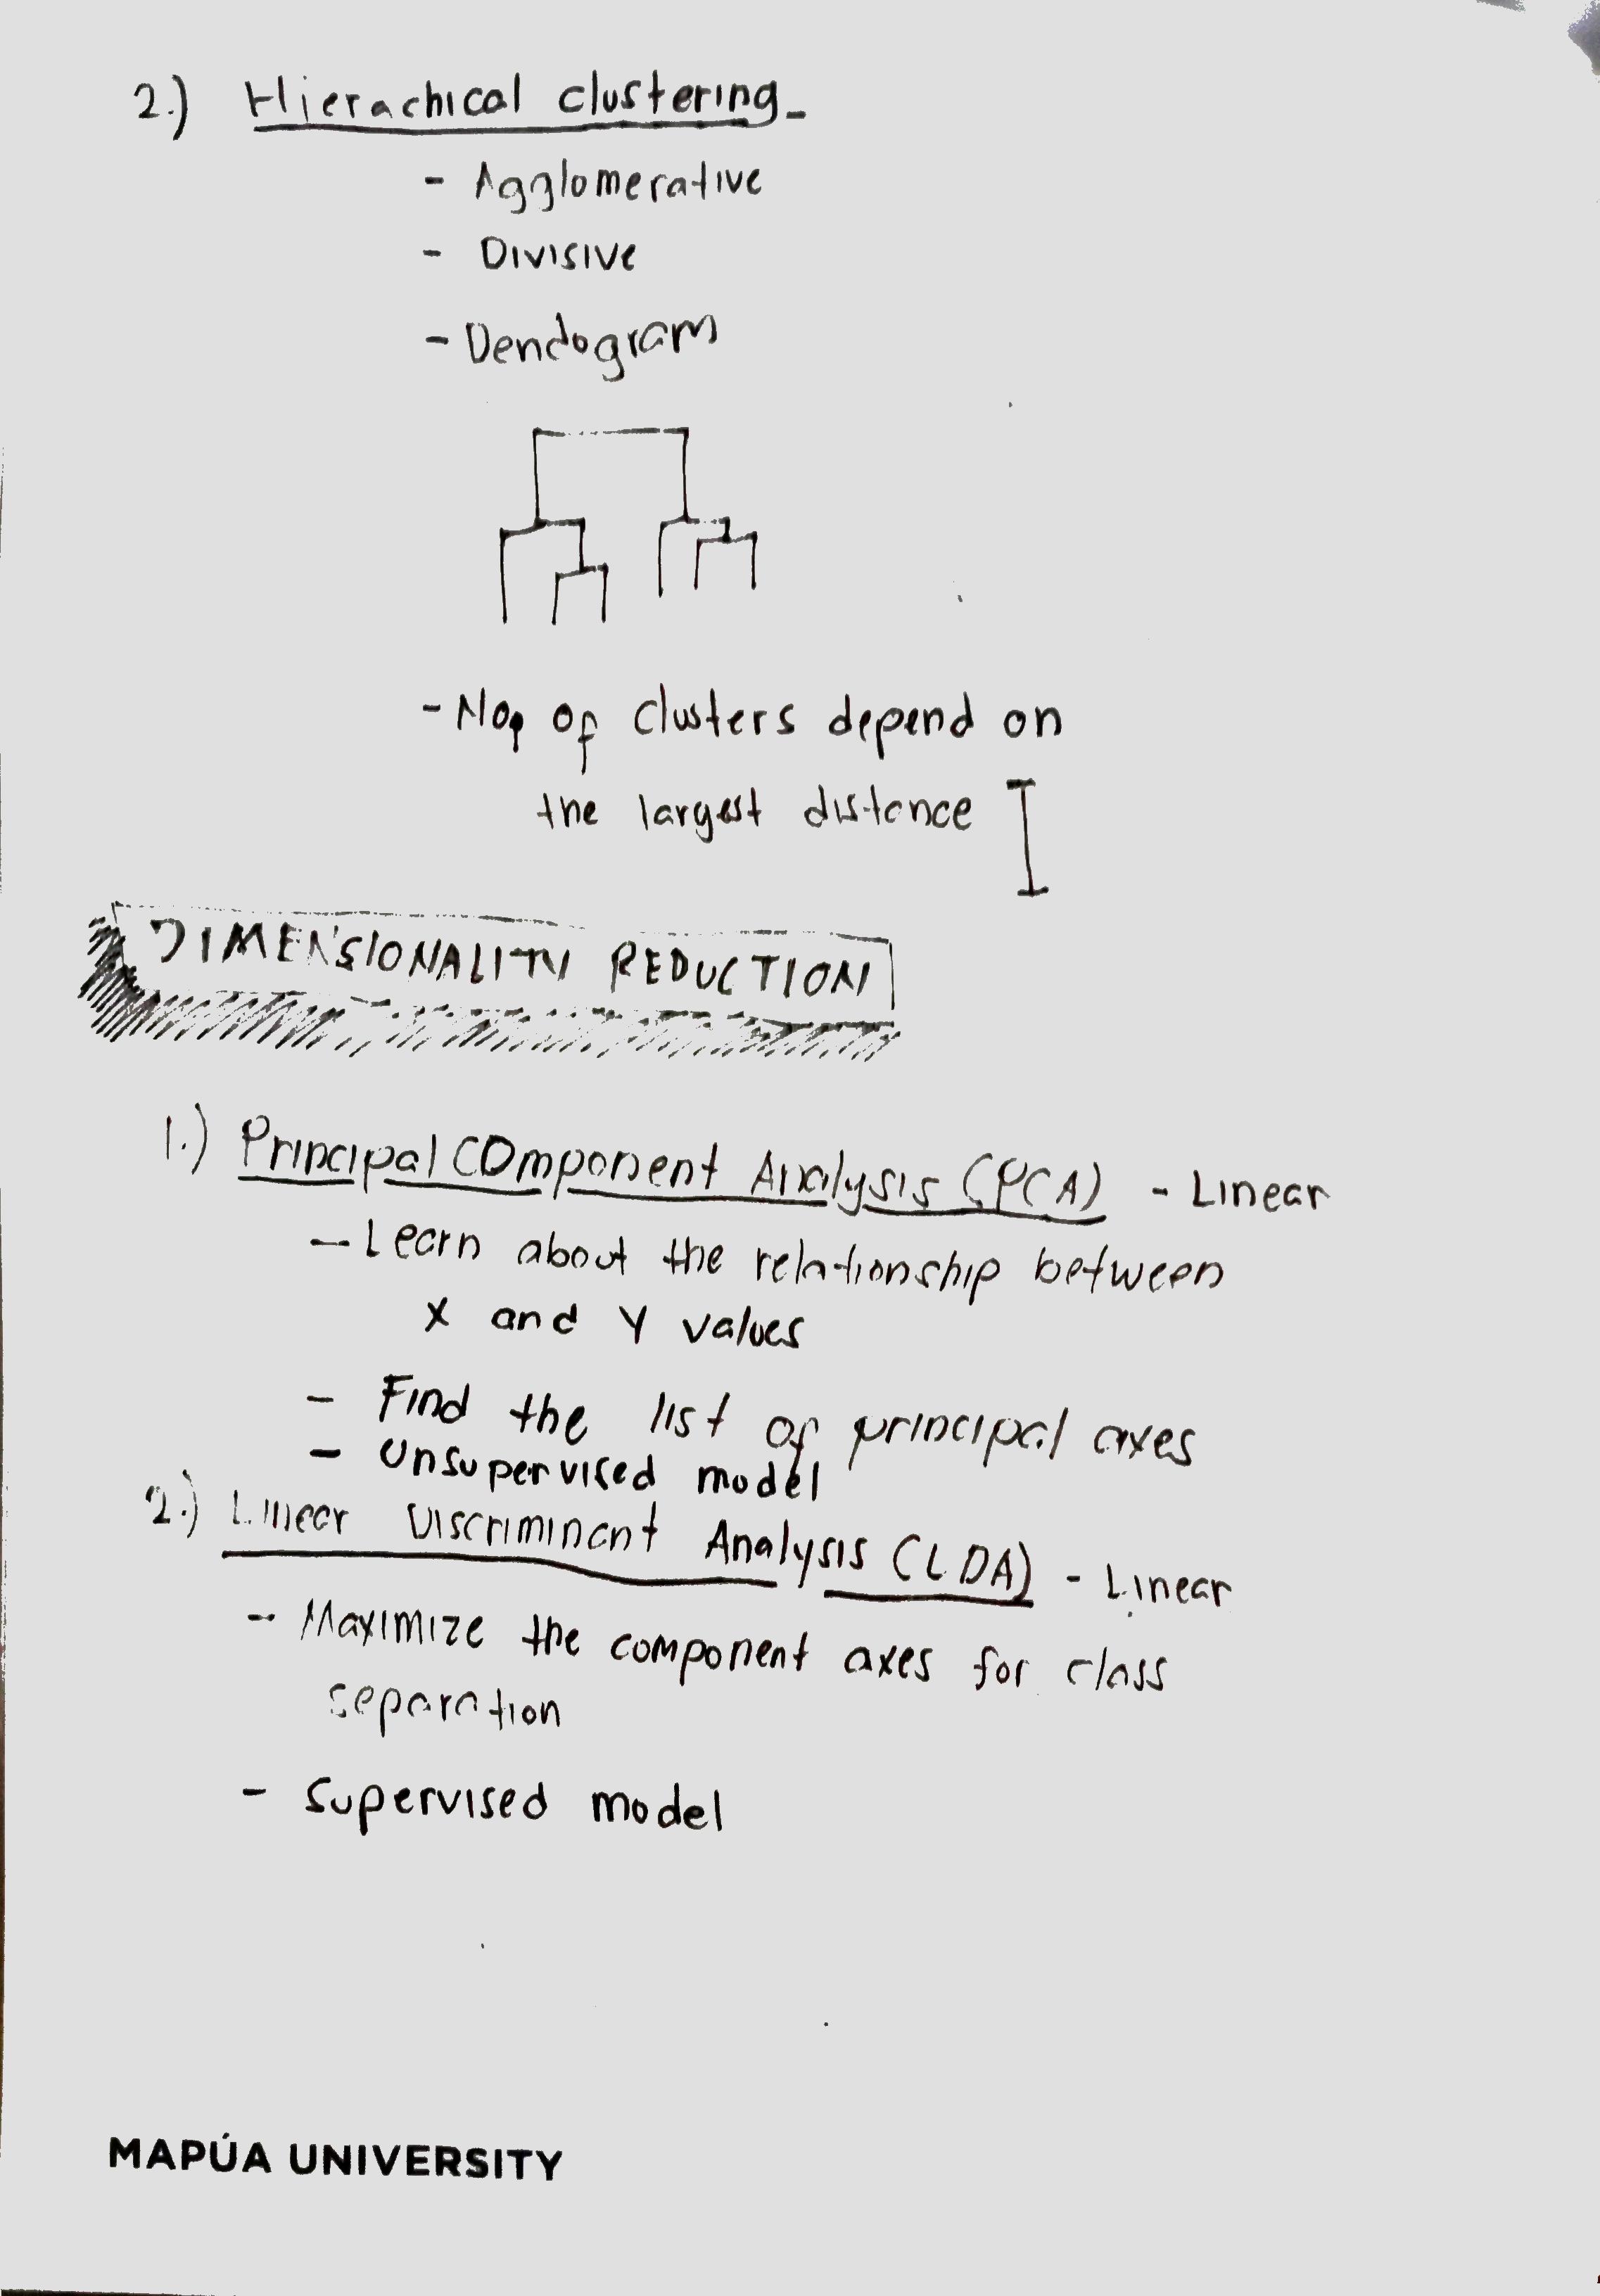 2.) Hierachical clustering
- Agglomerative
- Divisive
- Dendogram
- No, of clusters depend on
the largest distance
DIMENSIONALITY REDUCTION
1.) Principal Component Analysis (PCA) - Linear
- Learn about the relationship between
X and Y values
- Find the list of principal axes
- Unsupervised model
2.) Linear Discriminant Analysis (LDA) - Linear
- Maximize the component axes for class
separation
- Supervised model
MAPÚA UNIVERSITY